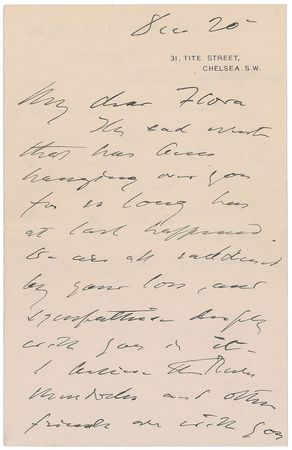 Dec 20
31, TITE STREET,
CHELSEA. S.W.
My dear Flora
The sad event
that has been
hanging over you
for so long has
at last happened.
We are all saddened
by your loss, and
sympathise deeply
with you in it -
I believe the Miss
and other
friends are with you